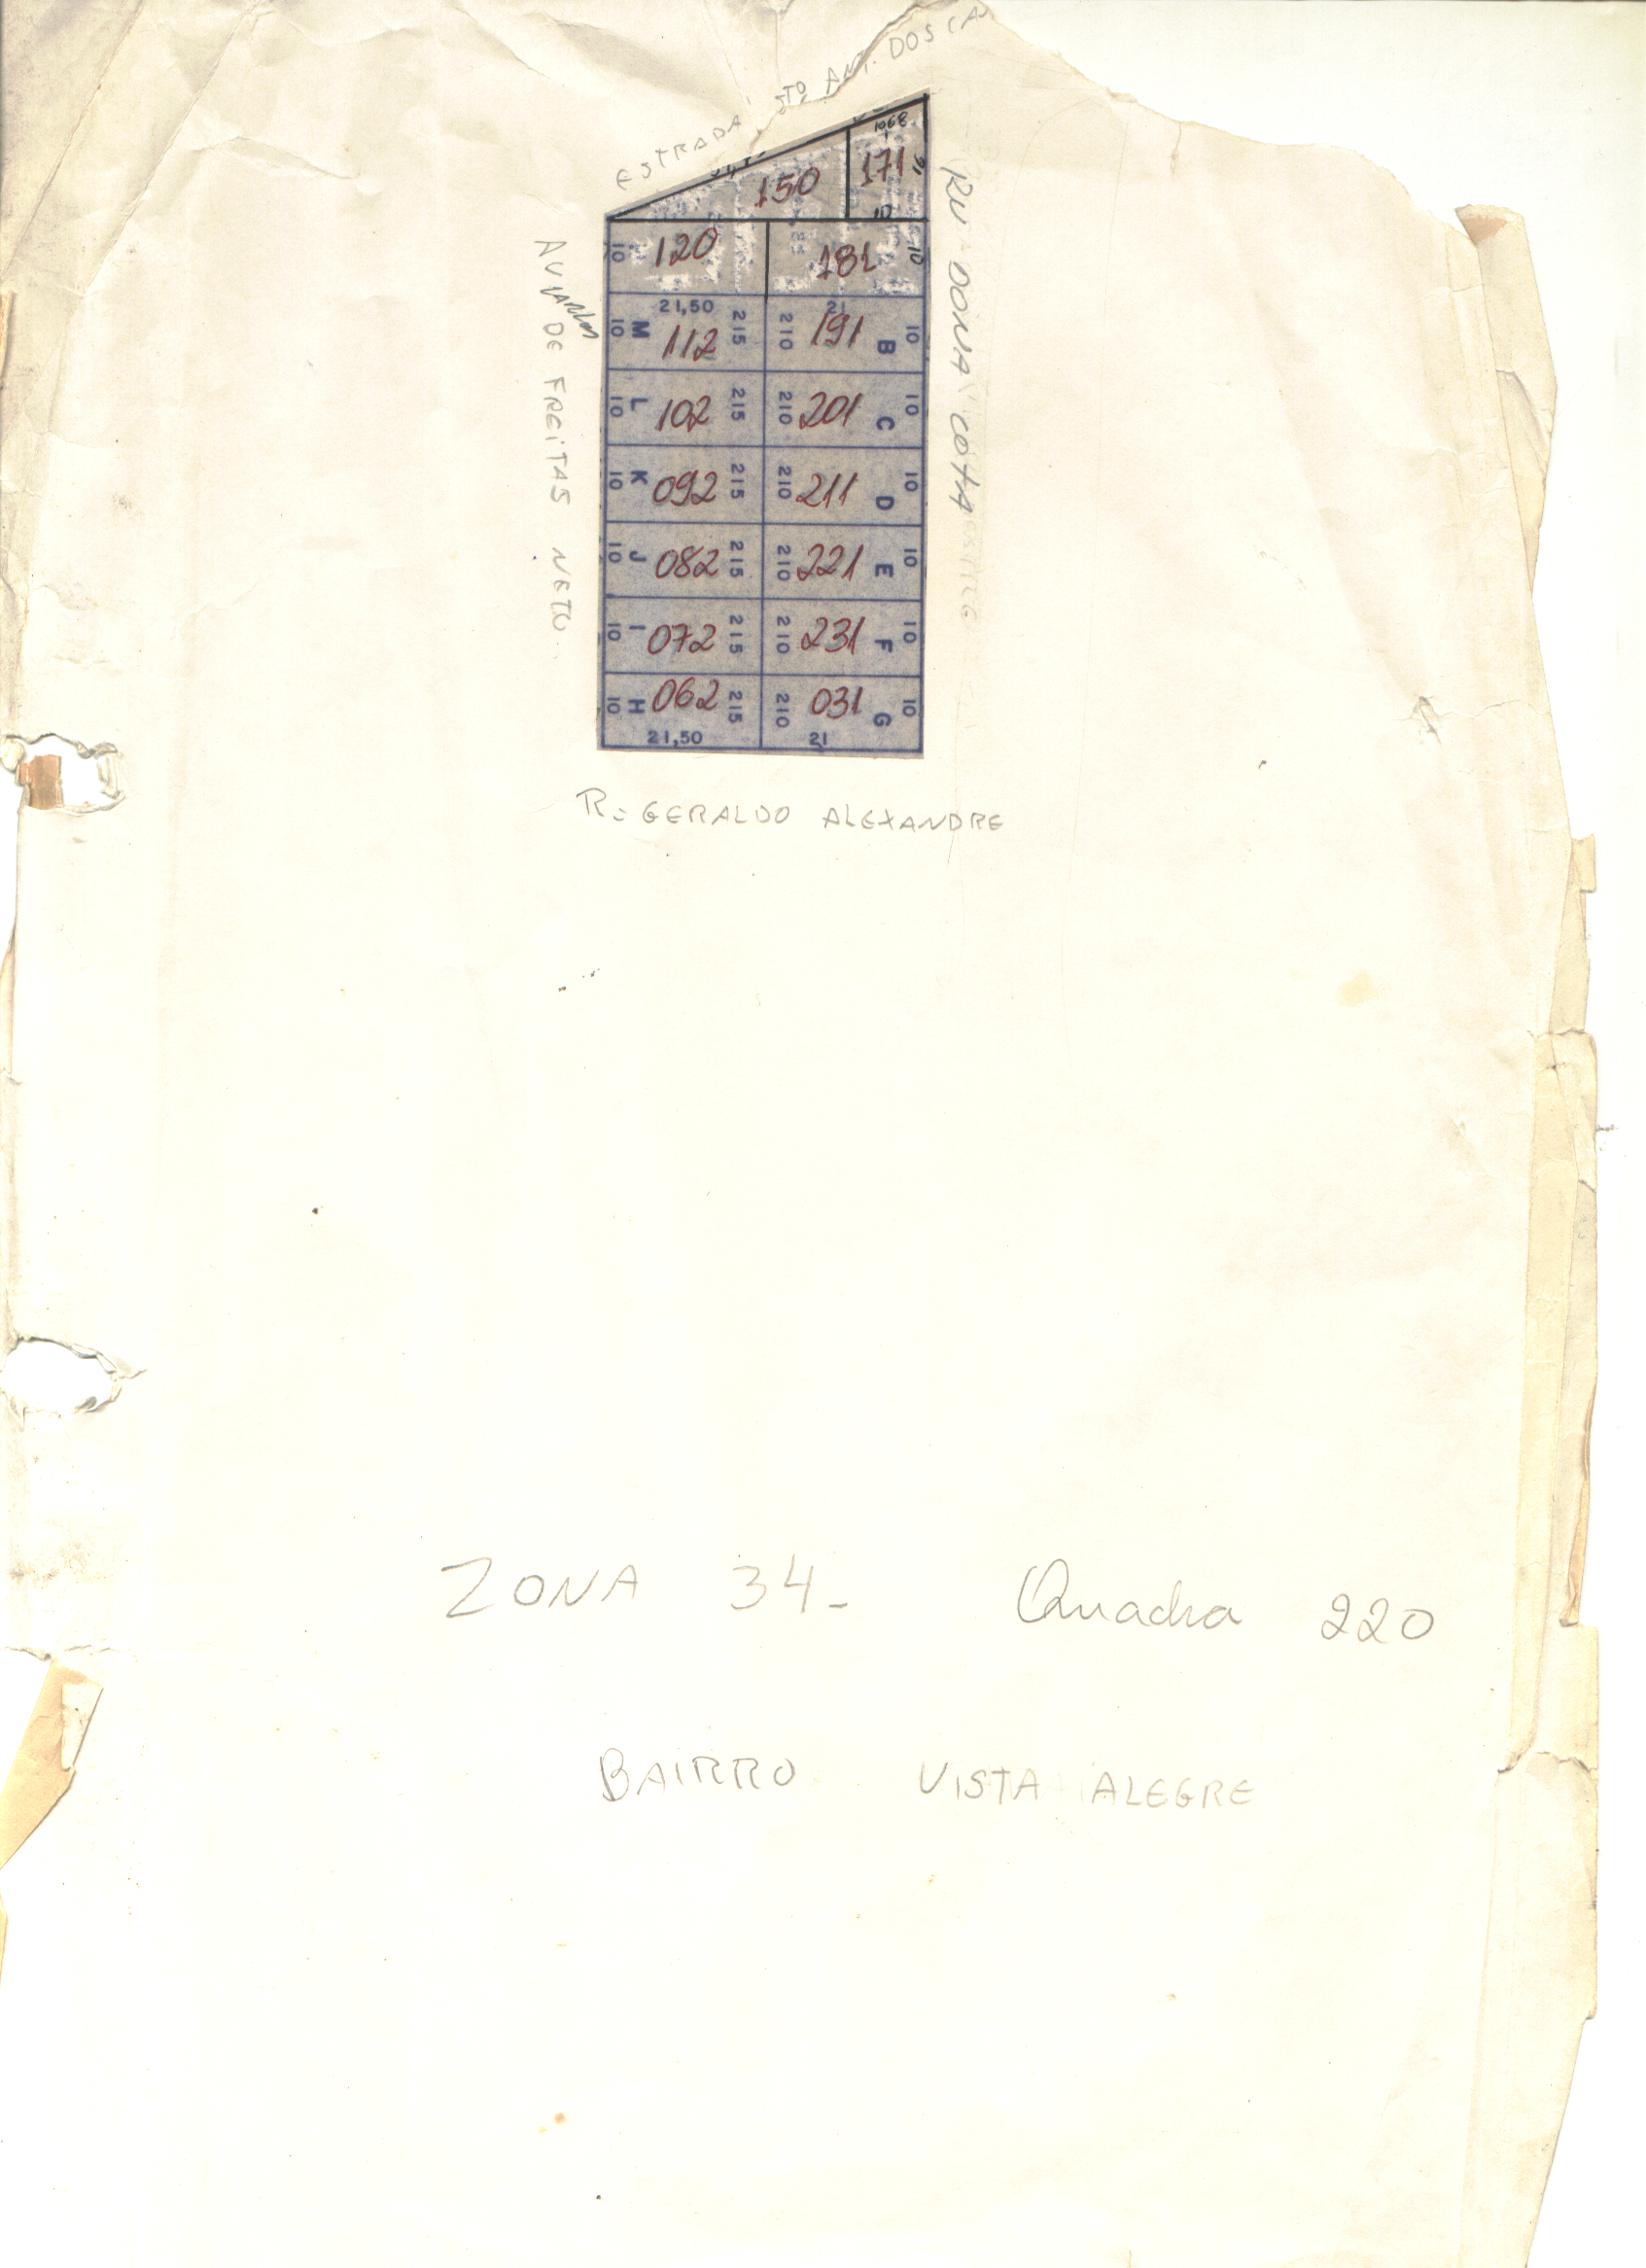 ESTRADA STO ANT. DOS CA
1068
150 171
10
10 120 181 10
AV CARLOS DE FREITAS NETO.
RU DONA COTA
21,50 21
10 M 112 215 210 191 B 10
10 L 102 215 210 201 C 10
10 K 092 215 210 211 D 10
10 J 082 215 210 221 E 10
10 I 072 215 210 231 F 10
10 H 062 215 210 031 G 10
21,50 21
R= GERALDO ALEXANDRE
ZONA 34- Quadra 220
BAIRRO VISTA ALEGRE